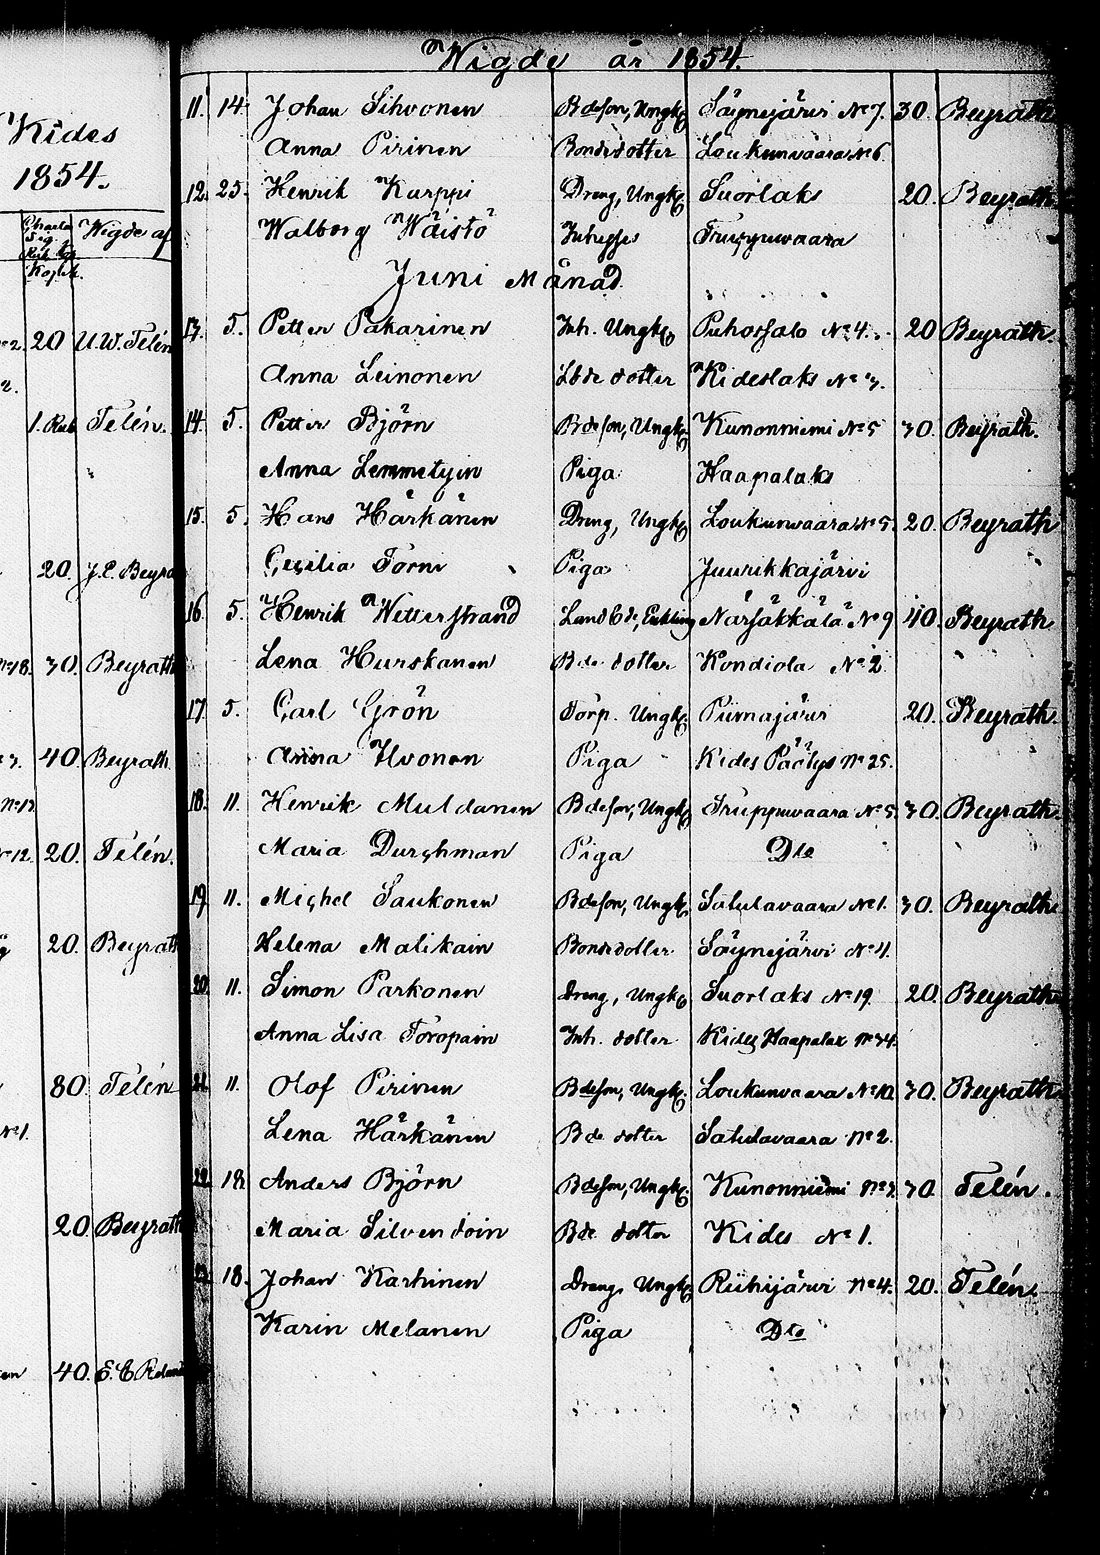 Kides
1854.
Wigde af
20 U.W. Telén
1. Rub Telén.
20. J.E. Beyra
No 18. 30. Beyrath
40 Beyrath
No 12. 20. Telén.
20. Beyrath
80. Telén
No 1.
20 Beyrath
40.
Wigde år 1854.
11. 14. Johan Sihvonen Bdeson, Ungk Säynejärvi No 7. 30. Beyrath
Anna Pirinen Bondedotter Loukunvaara No 6.
12. 25. Henrik Kurppi Dreng, Ungk Suorlaks 20. Beyrath
Walborg Wäistö Truppuvaara
Juni Månad
13. 5. Petter Pakarinen Inh. Ungk Puhossalo No 4. 20 Beyrath.
Anna Leinonen Lbde dotter Kideslaks No 3.
14. 5. Petter Björn Bdeson, Ungk Kunonniemi No 5 30. Beyrath.
Anna Lemmetyin Piga Haapalaks
15. 5. Hans Härkänen Dreng, Ungk Loukunvaara No 5. 20. Beyrath
Cecilia Törni Piga Juurikkajärvi
16. 5. Henrik Wetterstrand Landbde, Enkling Närsäkkälä No 9 40. Beyrath
Lena Hurskanen Bde dotter Kondiola No 2
17. 5. Carl Grön Torp. Ungk Piimajärvi 20. Beyrath.
Anna Ihvonen Piga Kides Päätys No 25.
18. 11. Henrik Muldanen Bdeson, Ungk Truppuvaara No 5. 30. Beyrath.
Maria Durchman Piga Dto
19. 11. Michel Saukonen Bdeson, Ungk Satulavaara No 1. 30. Beyrath
Helena Malikain Bondedotter Säynejärvi No 4.
20. 11. Simon Parkonen Dreng, Ungk Suorlaks No 19. 20. Beyrath
Anna Lisa Toropain Inh. dotter Kides Haapalax No 34.
21. 11. Olof Pirinen Bdeson, Ungk. Loukunvaara No 10. 30. Beyrath
Lena Härkänen Bde dotter Satulavaara No 2.
22. 18. Anders Björn Bdeson, Ungk. Kunonniemi No 3. 30. Telén.
Maria Silvendoin Bde dotter Kides No 1.
23. 18. Johan Karhinen Dreng, Ungk Riihijärvi No 4. 20. Telén.
Karin Melanen Piga Dto